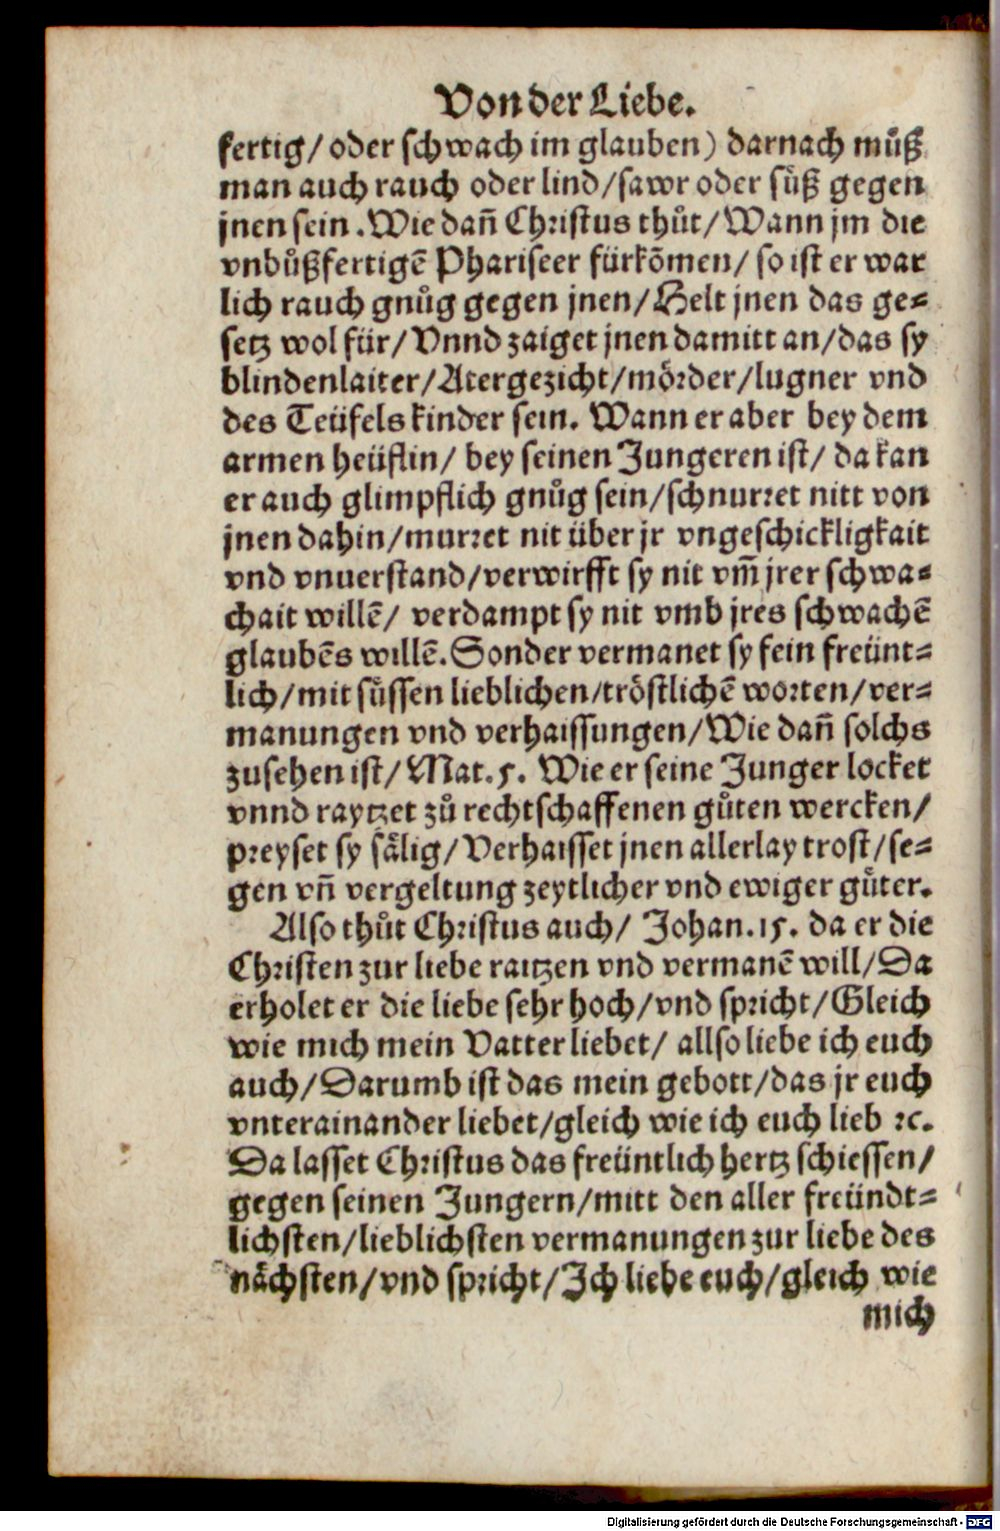 Von der Liebe.
fertig/ oder schwach im glauben) darnach muͤß
man auch rauch oder lind/sawr oder suͤß gegen
jnen sein. Wie dañ Christus thuͦt/ Wann jm die
vnbuͦßfertigẽ Phariseer fürkõmen/ so ist er war
lich rauch gnuͦg gegen jnen/ Helt jnen das ge-
setz wol für/ Vnnd zaiget jnen damitt an/das sy
blindenlaiter/Atergezicht/moͤrder/lugner vnd
des Teüfels kinder sein. Wann er aber bey dem
armen heüflin/ bey seinen Jungeren ist/ da kan
er auch glimpflich gnuͦg sein/schnurret nitt von
jnen dahin/murret nit über jr vngeschickligkait
vnd vnuerstand/verwirfft sy nit vm̃ jrer schwa-
chait willẽ/ verdampt sy nit vmb jres schwachẽ
glaubẽs willẽ. Sonder vermanet sy fein freünt-
lich/mit suͤssen lieblichen/troͤstlichẽ worten/ver-
manungen vnd verhaissungen/Wie dañ solchs
zusehen ist/ Mat. 5. Wie er seine Junger locket
vnnd raytzet zuͦ rechtschaffenen guͦten wercken/
preyset sy saͤlig/ Verhaisset jnen allerlay trost/se-
gen vñ vergeltung zeytlicher vnd ewiger guͤter.
Also thuͦt Christus auch/ Johan. 15. da er die
Christen zur liebe raitzen vnd vermanẽ will/Da
erholet er die liebe sehr hoch/vnd spricht/Gleich
wie mich mein Vatter liebet/ allso liebe ich euch
auch/Darumb ist das mein gebott/das jr euch
vnterainander liebet/gleich wie ich euch lieb ꝛc.
Da lasset Christus das freüntlich hertz schiessen/
gegen seinen Jungern/mitt den aller freündt-
lichsten/lieblichsten vermanungen zur liebe des
naͤchsten/vnd spricht/Ich liebe euch/gleich wie
mich
Digitalisierung gefördert durch die Deutsche Forschungsgemeinschaft - DFG